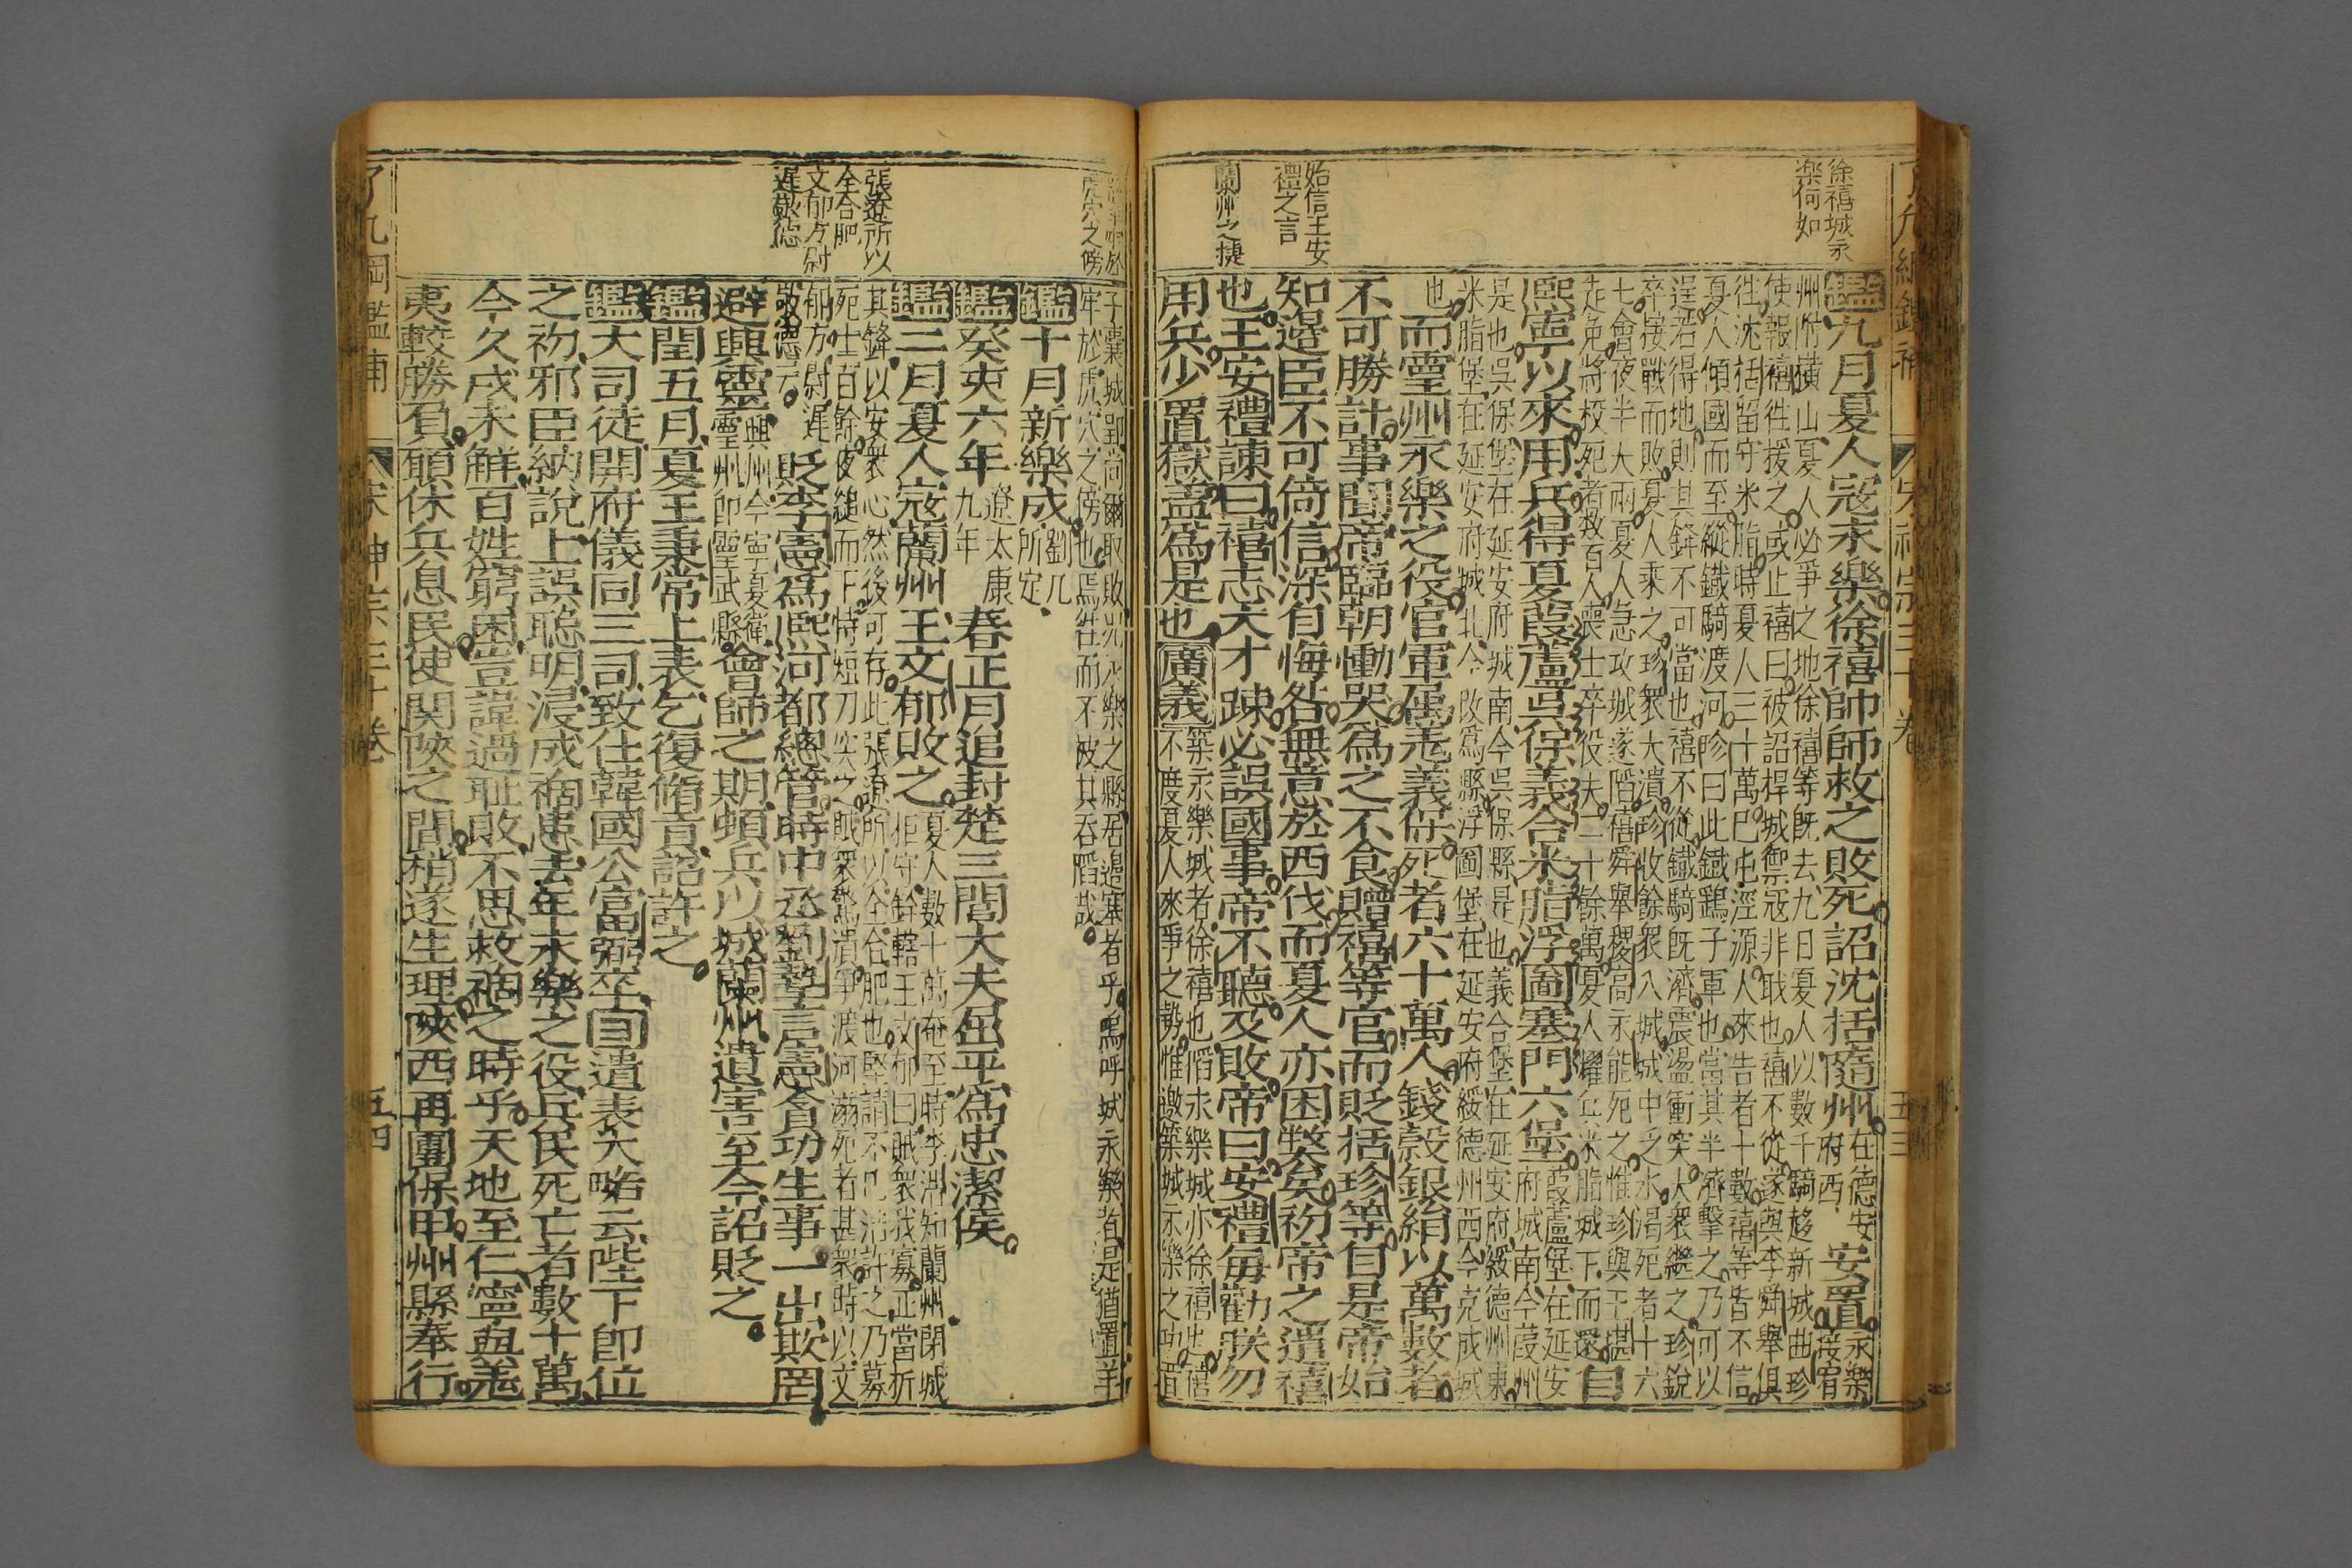 徐禧城永
樂何如
始信王安
禮之言
蘭州之捷
鑑九月夏人寇永樂徐禧師師救之敗死詔沈括隨州在德安府西安置永樂接宥
州附橫山夏人必爭之地徐禧等既去九日夏人以數千騎趍新城曲珍
使報禧徃援之或止禧曰被詔捍城禦寇非職也禧不從遂與李舜舉俱
徃沈括留守米脂時夏人三十萬已屯涇源人來告者十數禧等皆不信
夏人傾國而至縱鐵騎渡河珍曰此鐵鷂子軍也當其半濟擊之乃可以
逞若得地則其鋒不可當也禧不從鐵騎既濟震盪衝突大衆繼之珍銳
卒接戰而敗夏人乘之珍衆大潰珍收餘衆入城城中乏水渴死者十六
七會夜半大雨夏人急攻城遂陷禧舜舉稷高永能死之惟珍與王湛
走免將校死者數百人喪士卒役夫二十餘萬夏人耀兵米脂城下而還自
熙寧以來用兵得夏葭蘆吳保義合米脂浮圖塞門六堡葭蘆堡在延安府城南今葭州
是也吳保堡在延安府城南今吳保縣是也義合堡在延安府綏德州東
米脂堡在延安府城北今改爲縣浮圖堡在延安府綏德州西今克成城
也而靈州永樂之役官軍屬羌義保死者六十萬人錢糓銀絹以萬數者
不可勝計事聞帝臨朝慟哭爲之不食贈禧等官而貶括珍等自是帝始
知邊臣不可倚信深自悔咎無意於西伐而夏人亦困弊矣初帝之遣禧
也王安禮諫曰禧志大才踈必誤國事帝不聽及敗帝曰安禮每勸朕勿
用兵少置獄蓋爲是也廣義築永樂城者徐禧也陷永樂城亦徐禧也禧
不度夏人來爭之勢惟邀築城永樂之功置
虎穴之傍
張遼所以
全合肥
文郁方尉
遲敬德
子囊城郢尚爾取敗況永樂之縣居邊塞者乎嗚呼城永樂者是猶置羊
牢於虎穴之傍也焉往而不被其吞陷哉
鑑十月新樂成劉几所定
鑑癸亥六年遼太康九年春正月追封楚三閭大夫屈平爲忠潔侯
鑑二月夏人寇蘭州王文郁敗之夏人數十萬奄至時李浩知蘭州閉城
拒守鈐轄王文郁曰賊衆我寡正當折
其鋒以安衆心然後可存此張遼所以全合肥也堅請不已浩許之乃募
死士百餘夜縋而下持短刀突之賊衆驚潰爭渡河溺死者甚衆時以文
郁方尉遲敬德云貶李憲爲熙河都總管時中丞劉摯言憲貪功生事一出欺罔
避興靈興州今寧夏衛靈州即靈武縣會師之期頓兵以城蘭州遺害至今詔貶之
鑑閏五月夏王秉常上表乞復脩貢詔許之
鑑大司徒開府儀同三司致仕韓國公富弼卒目遺表大略云陛下即位
之初邪臣納說上誤聰明浸成禍患去年永樂之役兵民死亡者數十萬
今久戍未解百姓窮困豈諱過耻敗不思救禍之時乎天地至仁寧與羌
夷較勝負願休兵息民使関陝之間稍遂生理陝西再團保甲州縣奉行
了凡綱鑑補
宋神宗三十卷
五四